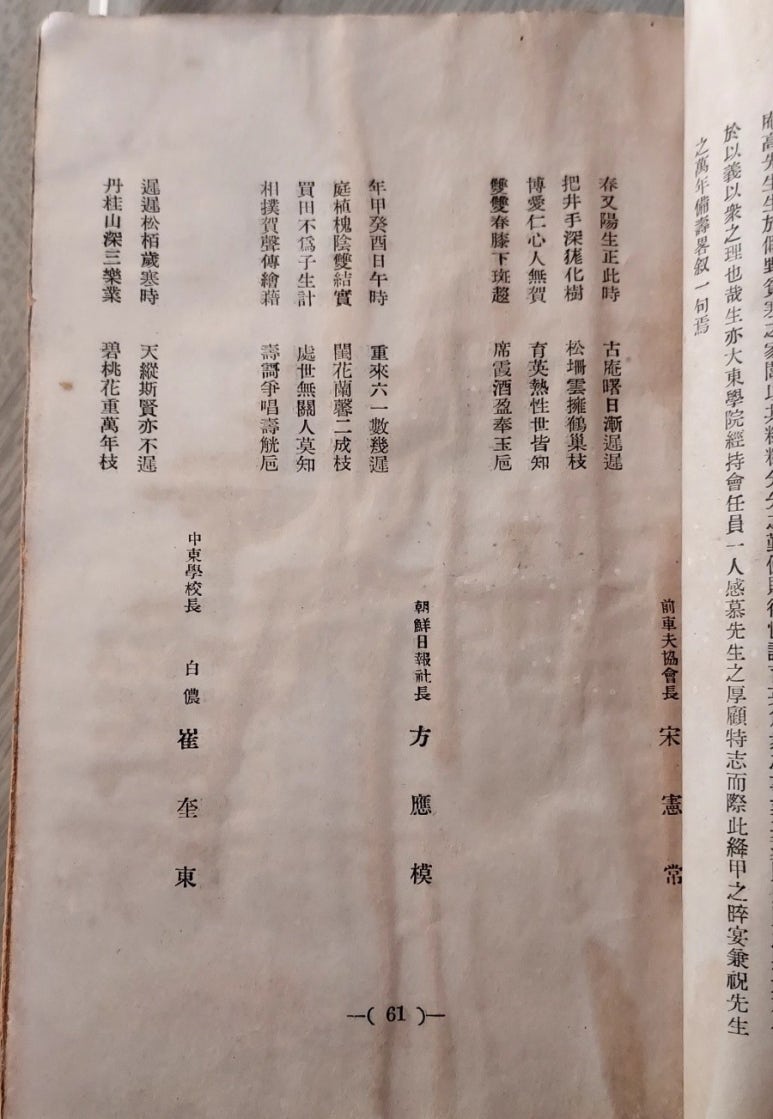 於以義以衆之理也哉生亦大東學院經持會任員一人感慕先生之厚顧特志而際此絳甲之晬宴兼祝先生
之萬年備壽畧叙一句焉
前車夫協會長 宋憲常
春又陽生正此時 古庵曙日漸遲遲
把井手深 化樹 松壇雲擁鶴巢枝
博愛仁心人無賀 育英熱性世皆知
雙雙春膝下斑趨 席霞酒盈奉玉巵
朝鮮日報社長 方應模
年甲癸酉日午時 重來六一數幾遲
庭植槐陰雙結實 閨花蘭馨二成枝
買田不爲子生計 處世無關人莫知
相撲賀聲傳繪藉 壽謌爭唱壽觥巵
中東學校長 白儂 崔奎東
遲遲松栢歲寒時 天縱斯賢亦不遲
丹桂山深三樂業 碧桃花重萬年枝
—( 61 )—